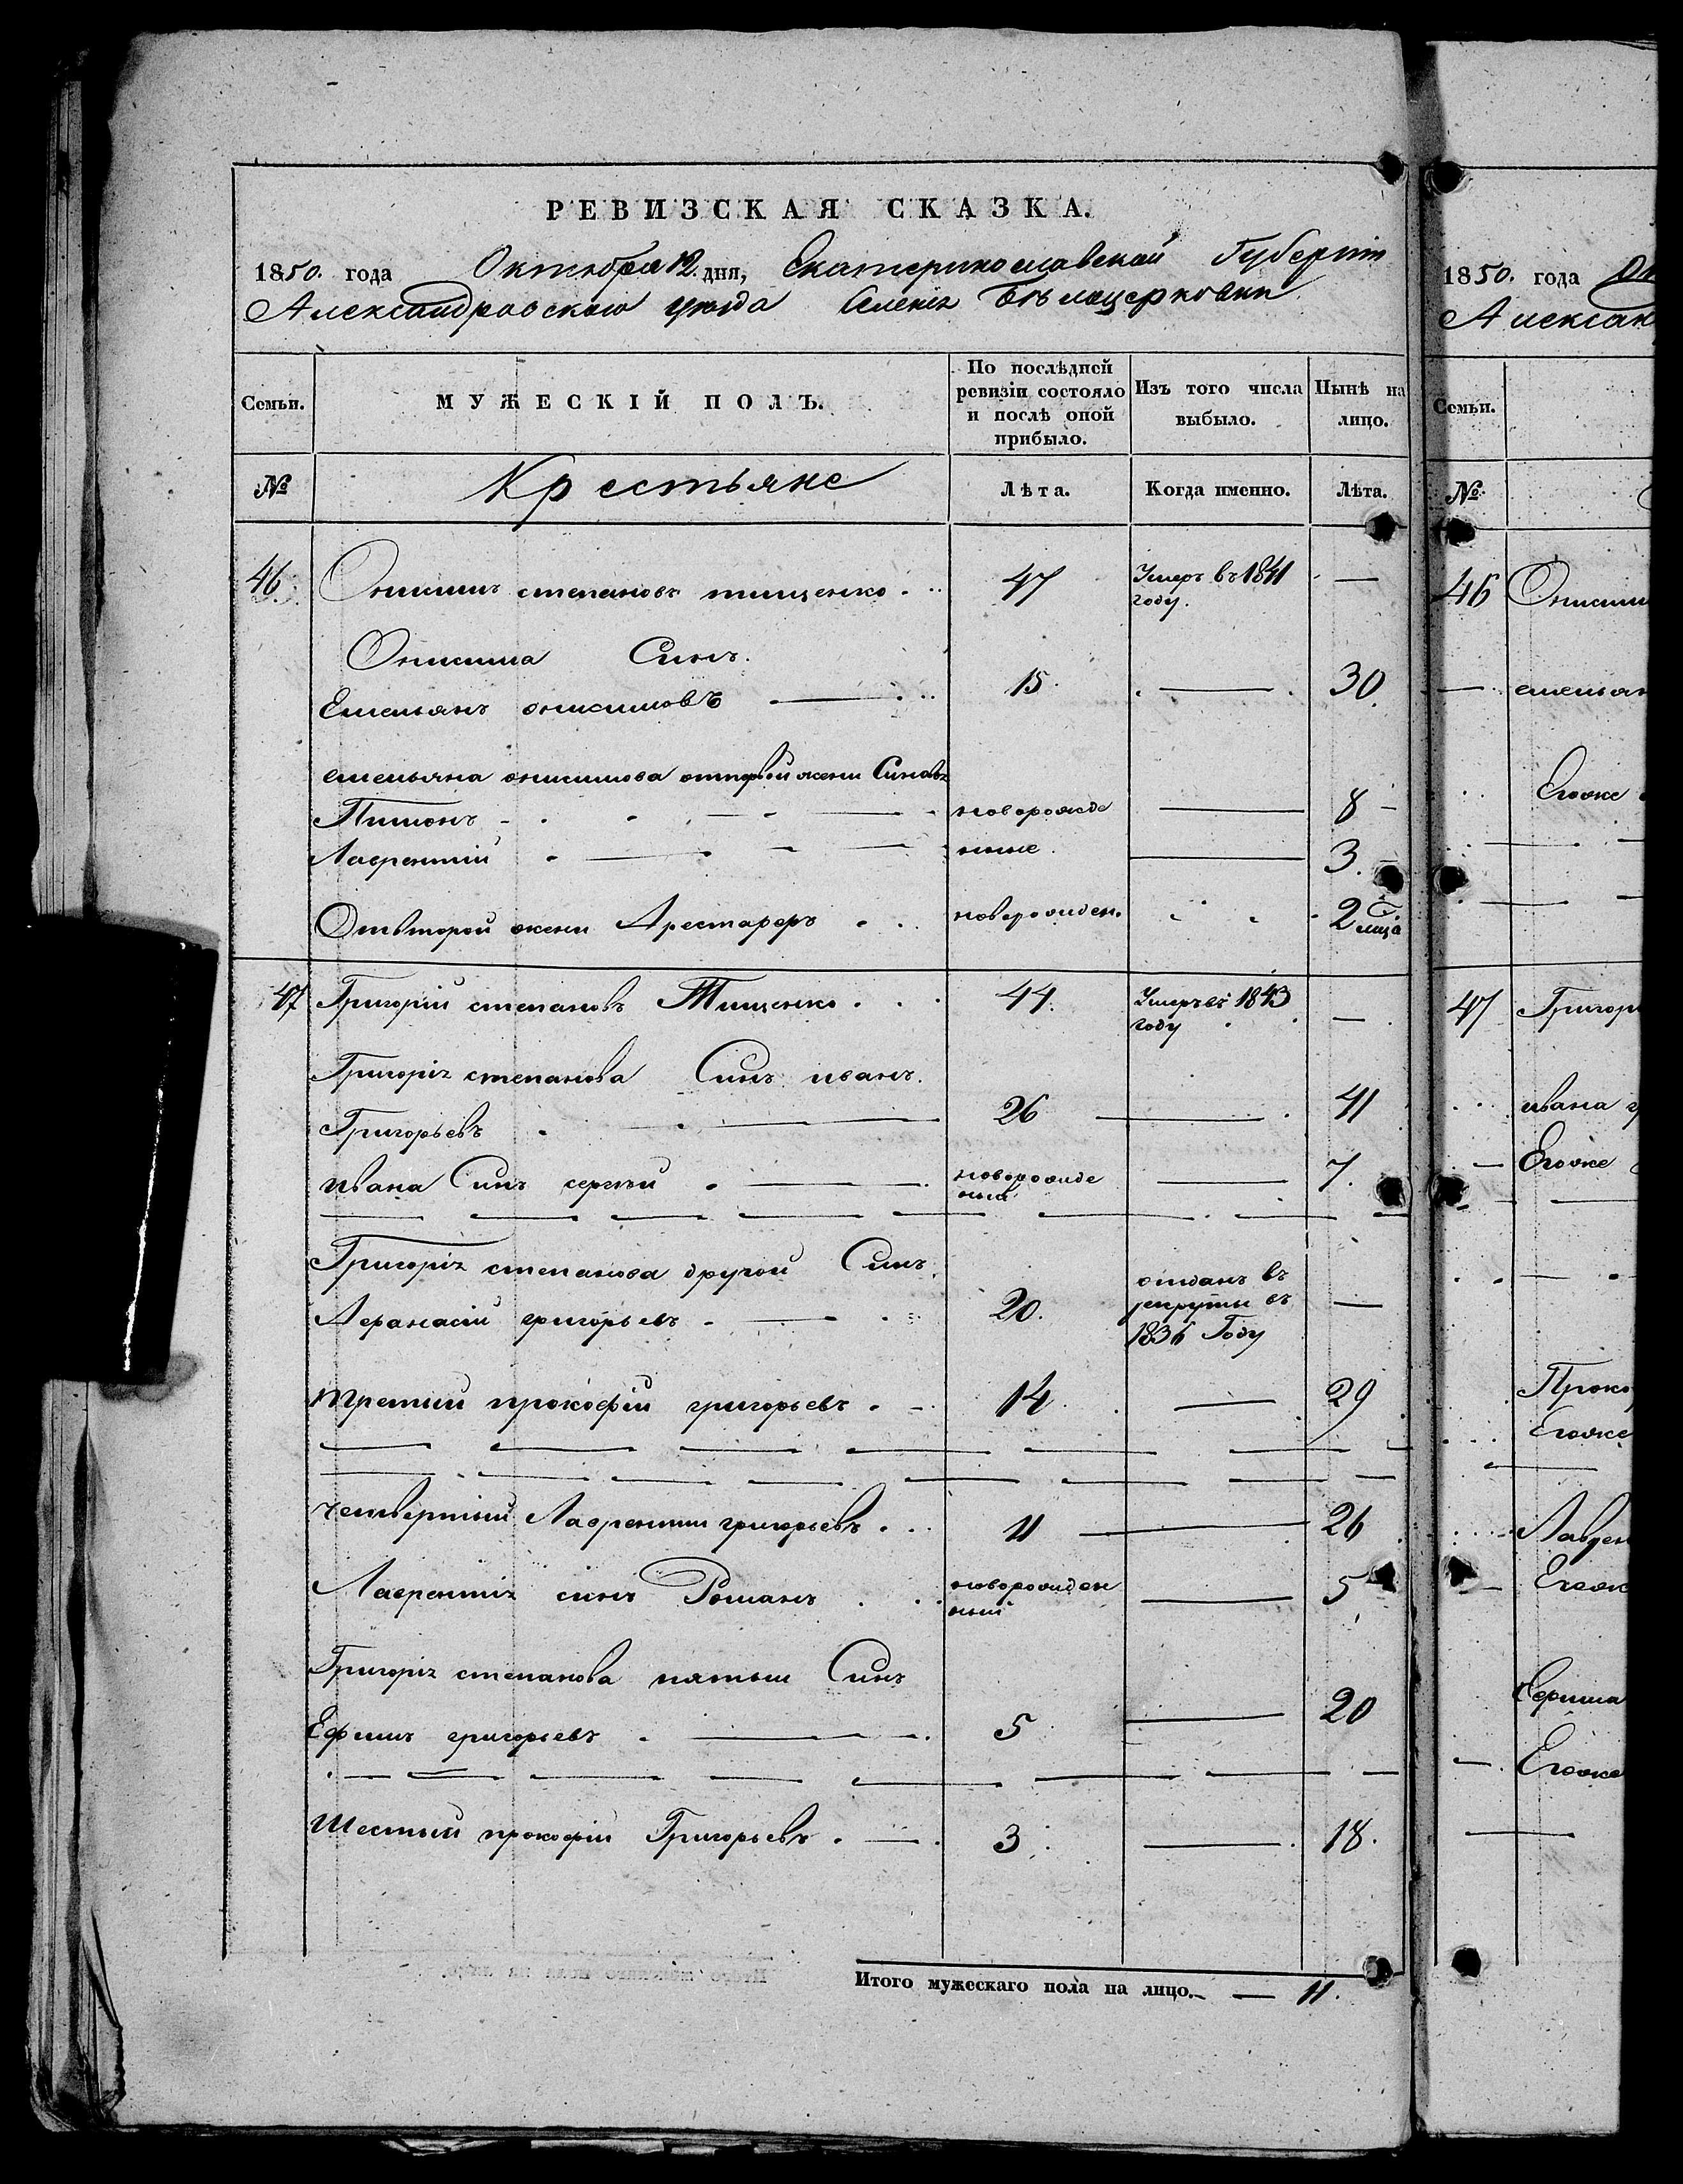 РЕВИЗСКАЯ СКАЗКА.
1850. года Октября 12 дня, Екатеринославской Губернии
Александровского уезда Селения Беляцерковки
Семьи. МУЖЕСКІЙ ПОЛЪ. По послѣдней ревизіи состояло и послѣ оной прибыло. Изъ того числа выбыло. Нынѣ на лицо.
№ Крестьяне Лѣта. Когда именно. Лѣта.
46 Онисимъ степановъ тищенко 47 Умеръ въ 1841 году. —
Онисима Синъ.
Емельянъ онисимовъ 15 — 30
емельяна онисимова отпервой жени Синовъ
Пимонъ новорожде — 8
Лаврентий нные — 3
Отвторой жени Арестарфъ новорожден. 2 лица
47 Григорій степановъ Тищенко 44. Умеръ въ 1843 году —
Григорія степанова Синъ иванъ.
Григорьевъ 26 — 41
ивана Синъ сергей новорожде нный — 7.
Григорія степанова другой Синъ
Афанасій григорьевъ 20. отданъ въ рекруты въ 1836 Году —
третий прокофій григорьевъ 14 — 29
четвертый Лаврентии григорьевъ 11 — 26
Лаврентія синъ Романъ новорожден ный — 5
Григорія степанова пятыи Синъ
Ефимъ григорьевъ 5 — 20
Шестый прокофій Григорьевъ 3 — 18.
Итого мужескаго пола на лицо. — 11.
1850. года
Алексан
Семьи.
№
46 Онисим
емельян
Егоже
47 Григор
ивана г
Егоже
Проко
Егоже
Лаврен
Егож
Ефима
Егоже